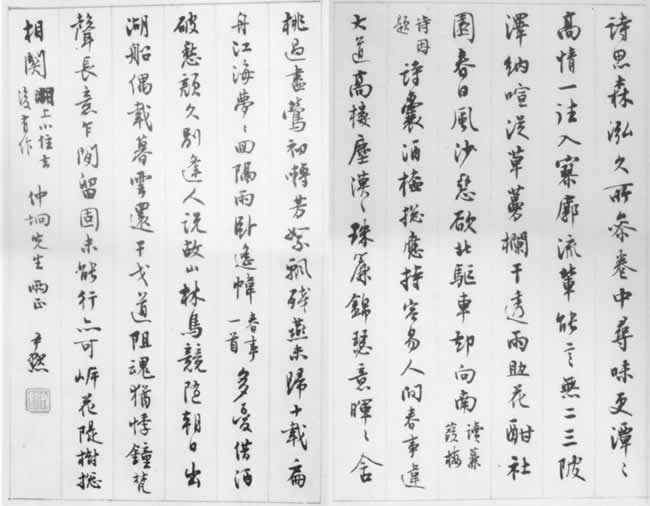 詩思森泓久所參卷中尋味更潭〻
高情一往入寥廓流輩能言無二三陂
澤納喧從草蔓欄干透雨助花酣社
園春日風沙惡欲北驅車却向南讀蒹葭樓
詩因題詩囊酒榼總應持容易人間春事違
大道高樓塵漠〻珠簾錦瑟意暉〻含
桃過盡鶯初囀芳絮飄殘燕未歸十載扁
舟江海夢〻回隔雨臥遙幃春事一首多憂借酒
破愁顏久別逢人說故山林鳥競隨朝日出
湖船偶載暮雲還干戈道阻魂猶悸鐘梵
聲長意乍閒留固未能行亦可㟁花隄樹總
相關湖上小住去後有作仲坰先生兩正尹默